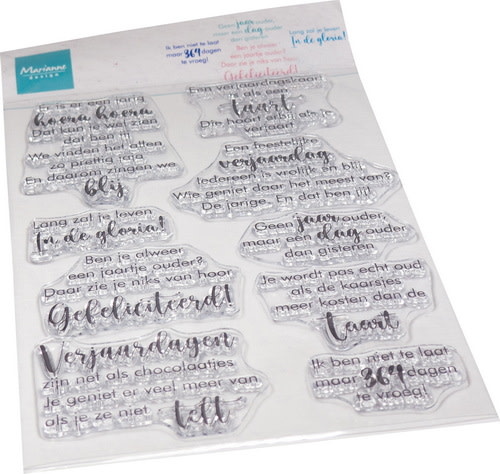 Marianne
design
Ik ben niet te laat
maar 364 dagen
te vroeg!
Geen jaar ouder,
maar een dag ouder
dan gisteren
Ben je alweer
een jaartje ouder?
Daar zie je niks van hoor
Gefeliciteerd!
Lang zal je leven
In de gloria!
Er is er een jarig
hoera hoera
Dat kan je wel zien
dat ben jij
We vinden het allen
zo prettig
En daarom zingen we
blij
Lang zal je leven
In de gloria!
Ben je alweer
een jaartje ouder?
Daar zie je niks van hoor
Gefeliciteerd!
Verjaardagen
zijn net als chocolaatjes
Je geniet er veel meer van
als je ze niet
telt
Een verjaardagstaart
is als een
taart
Die hoort erbij als je
verjaart
Een feestelijke
verjaardag
Iedereen is vrolijk en blij
Wie geniet daar het meest van?
De jarige. En dat ben jij!
Geen jaar ouder,
maar een dag ouder
dan gisteren
Je wordt pas echt oud
als de kaarsjes
meer kosten dan de
taart
Ik ben niet te laat
maar 364 dagen
te vroeg!